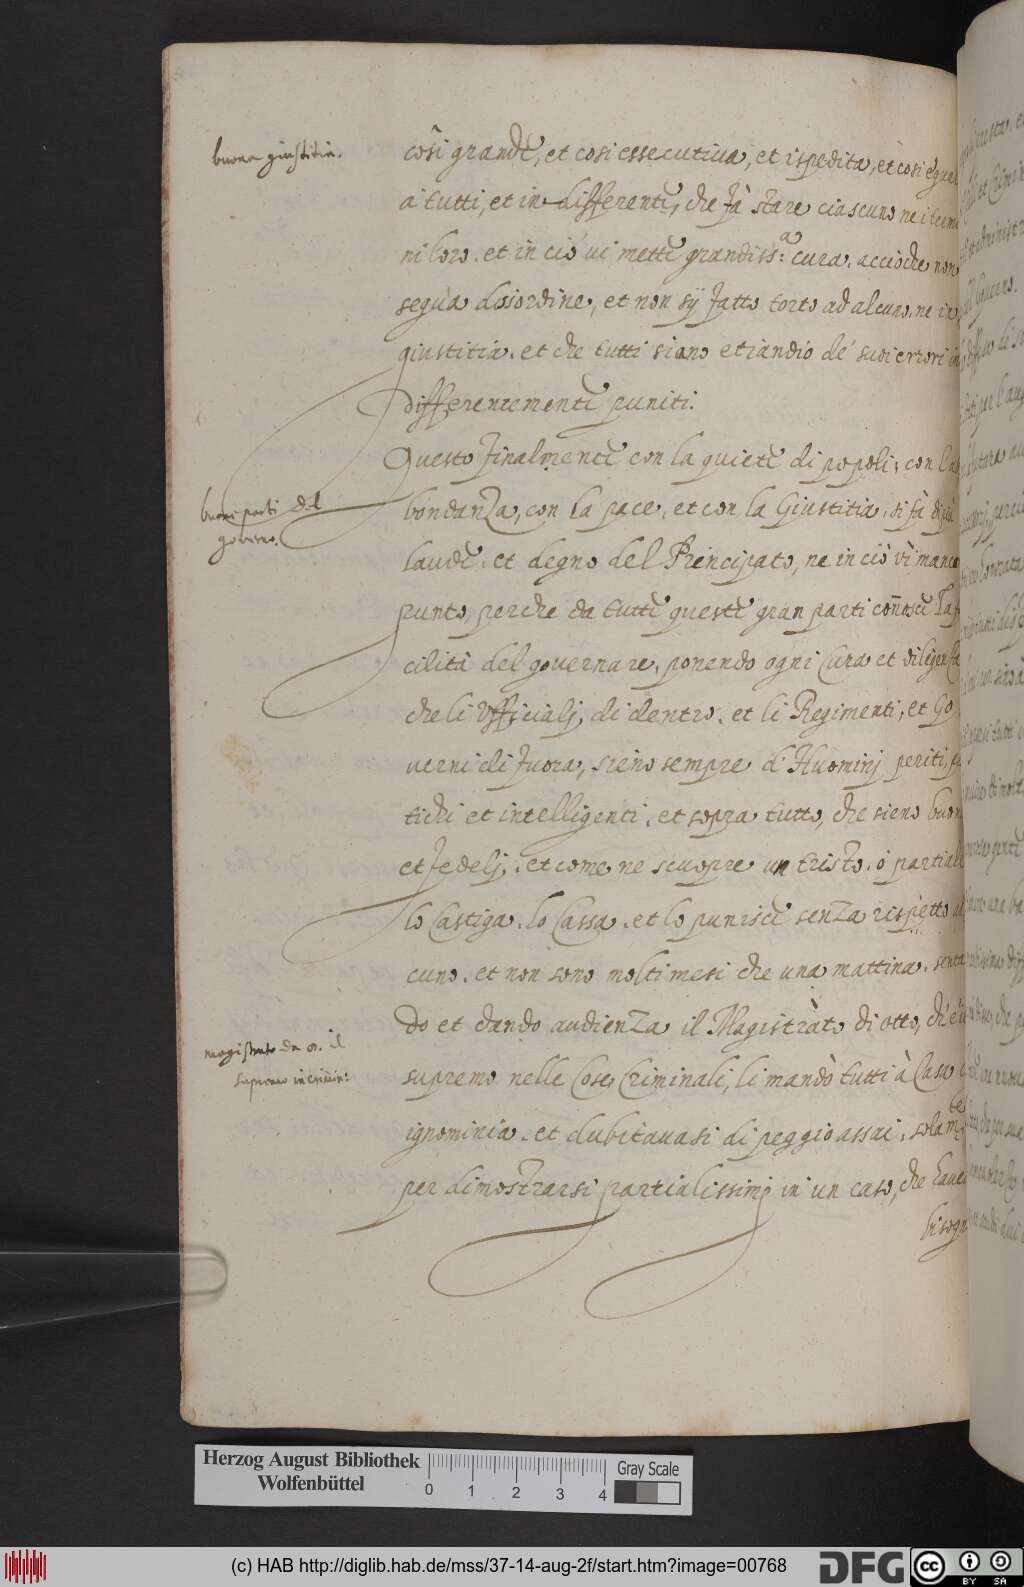 buona giustitia.
così grande, et cosi essecutiva, et ispedita, et cosi egual
a tutti, et indifferente, che fà stare ciascuno ne i termi
ni loro. et in ciò vi mette grandiss:ᵃ cura. acciòche non
segua disordine, et non sÿ fatto torto ad alcuno. ne in
giustitia. et che tutti siano etiandio de' suoi errori in
differentemente puniti.
Questo finalmente con la quiete di popoli, con l'a
buone parti del
governo.
bondanza, con la pace, et con la Giustitia, si fà di
laude. et degno del Principato, ne in ciò vi manca
punto, perche da tutte queste gran parti conosce la fa
cilità del governare, ponendo ogni cura et diligenza
che li Ufficialj di dentro. et li Regimenti, et Go
verni di fuora, sieno sempre di Huominj periti, pra
tichi et intelligenti. et sopra tutto, che sieno buoni
et fedelj. et come ne scuopre un tristo. ò partiale
lo Castiga. lo Cassa. et lo punisce senza rispetto al
cuno. et non sono molti mesi che una mattina. senta
do et dando audienza il Magistrato di otto, ch'è il
magistrato da 8. il
supremo in crimin:
supremo nelle Cose Criminali, li mandò tutti à Casa
ignominia. et dubitavasi di peggio assai, solamᵗᵉ
per dimostrarsi partialissimj in un caso, che
bisogn
Herzog August Bibliothek
Wolfenbüttel
0 1 2 3 4
Gray Scale
(c) HAB http://diglib.hab.de/mss/37-14-aug-2f/start.htm?image=00768
DFG
cc BY SA